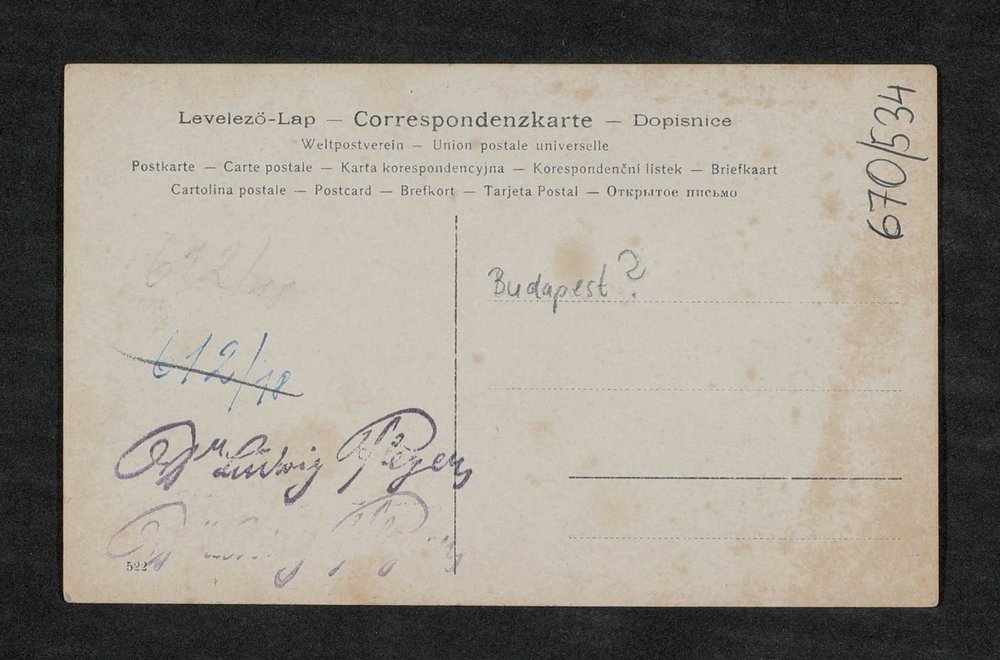 Levelező-Lap — Correspondenzkarte — Dopisnice
Weltpostverein — Union postale universelle
Postkarte — Carte postale — Karta korespondencyjna — Korespondenční lístek — Briefkaart
Cartolina postale — Postcard — Brefkort — Tarjeta Postal — Открытое письмо
670/534
Budapest?
612/18
Ludwig
522